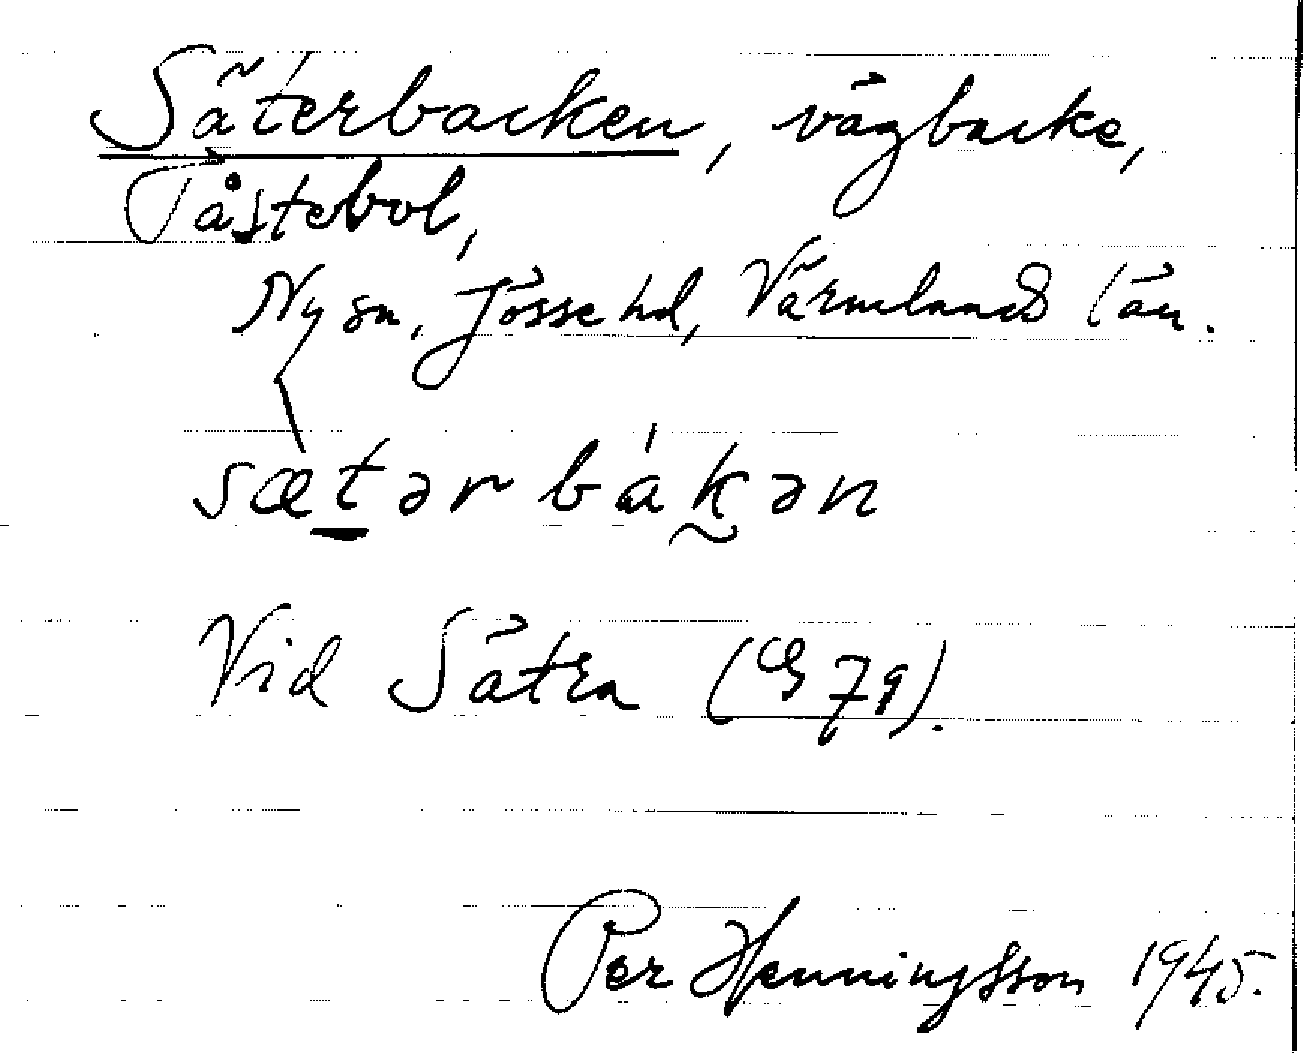 Säterbacken, vägbacke,
Tåstebol,
Ny sn, Jösse hd, Värmlands län.
sæ̀tərbákən
Vid Sätra (G 79).
Per Henningsson 1945.